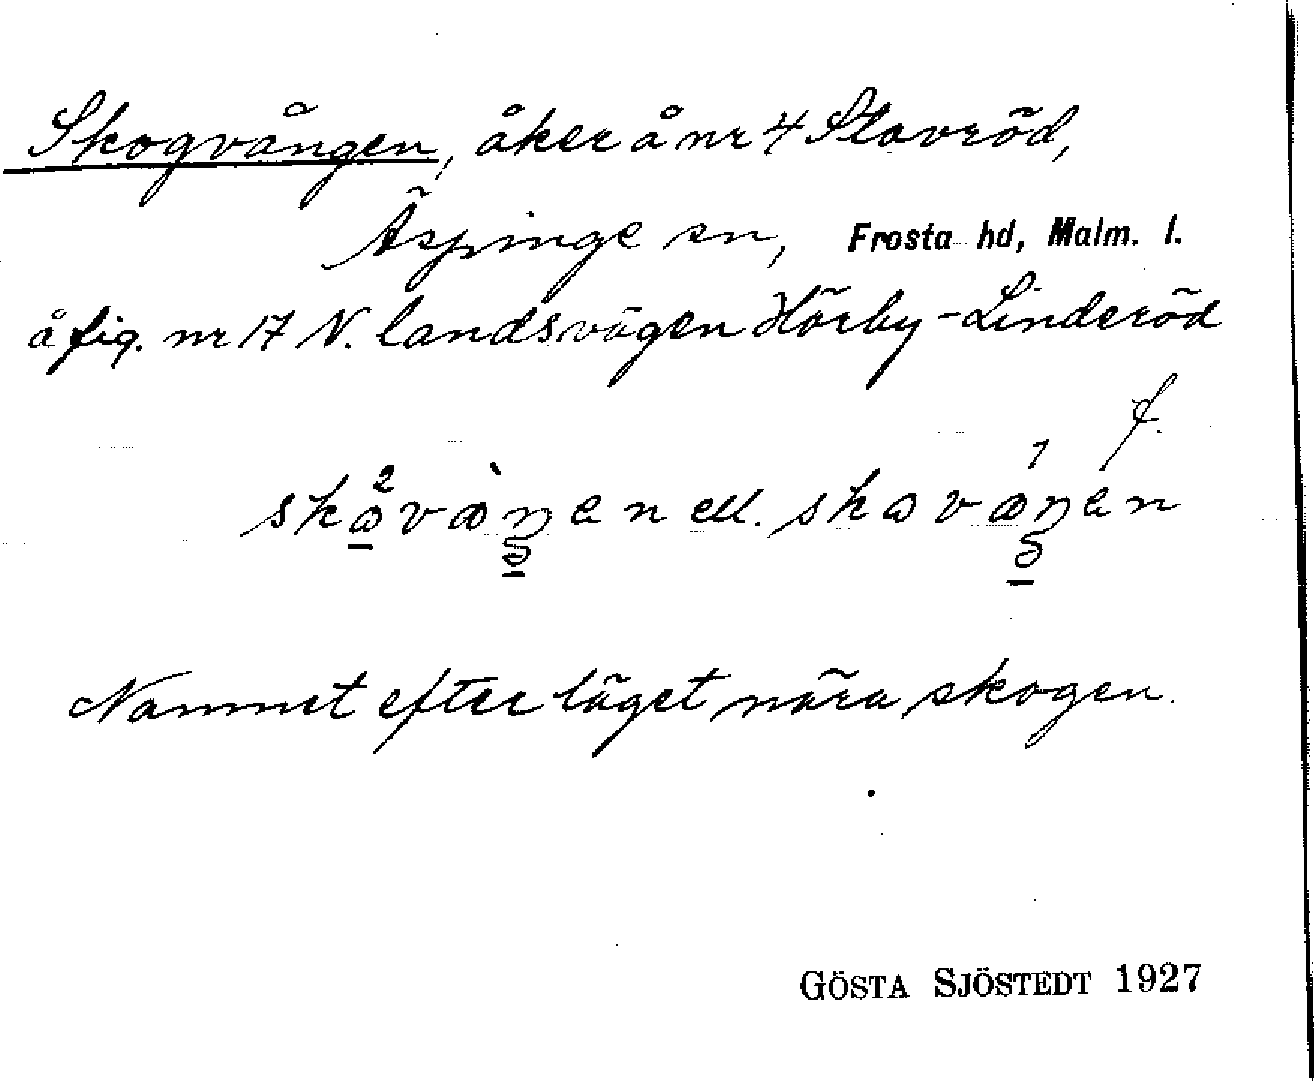 Skogvången, åker å nr 4 Slavröd,
Äspinge sn, Frosta hd, Malm. l.
å fig. nr 17 N. landsvägen Hörby-Linderöd
f.
ell.
Namnet efter läget nära skogen.
GÖSTA SJÖSTEDT 1927